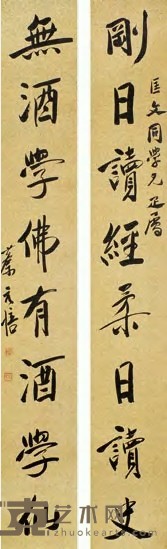 剛日讀經柔日讀史
匡文同學兄正屬
無酒學佛有酒學仙
藝术网
www.zhuokearts.com